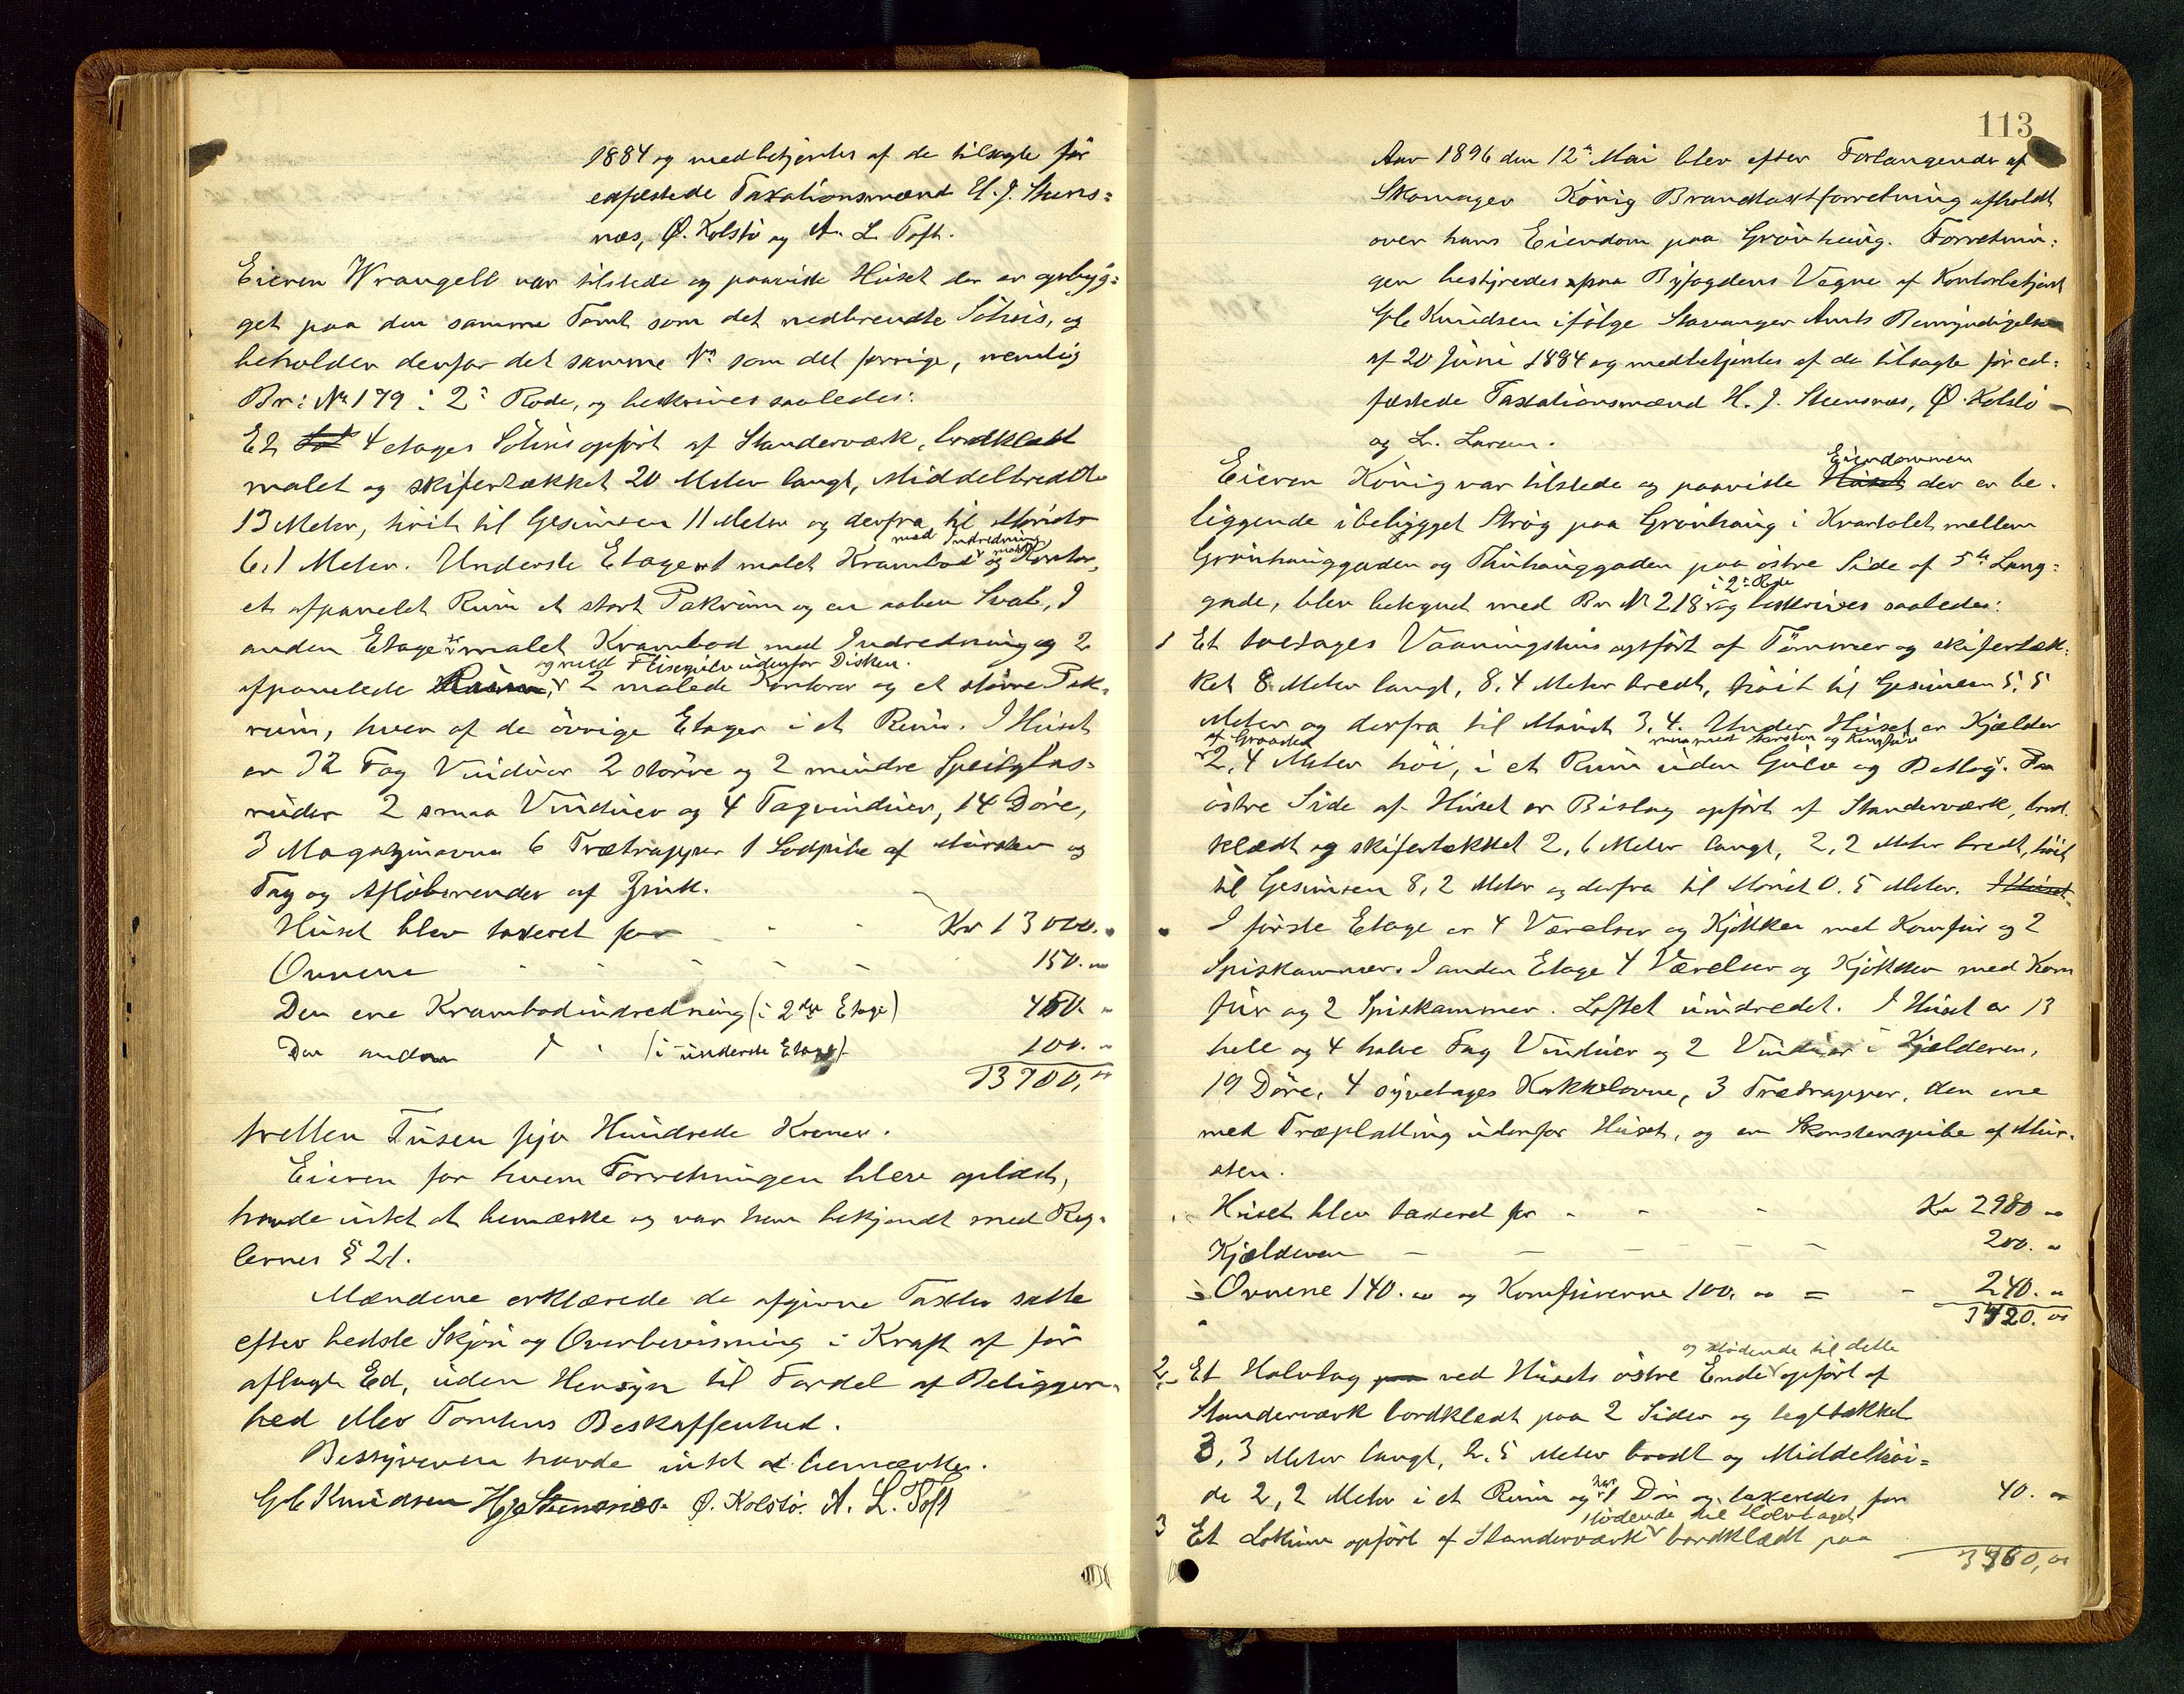 1884 og medbetjentes af de tilsagte før
edfæstede Taxationsmænd H. J. Stens-
næs, Ø. Kolstø og A. L. Toft.
Eieren Wrangell var tilstede og paaviste Huset der er opbyg-
get paa den samme Tomt som det nedbrendte Söhus, og
beholder derfor det samme No som det forrige, nemlig
Br: No 179 i 2: Rode, og beskrives saaledes:
Et 4 etages Söhus opført af Standerværk, bordklædt
malet og skifertækket 20 Meter langt, Middelbredde
13 Meter, höit til Gesimsen 11 Meter og derfra til Mønet
6,1 Meter. Underste Etage er 1 malet Krambod med Indredning og malet Kontor,
et afpanelet Rum et stort Pakrum og en aaben Sval, I
anden Etage er malet Krambod med Indredning og 2
og med Flisegulv udenfor Disken.
afpanelede Rum, 2 malede Kontorer og et større Pak-
rum, hver af de övrige Etager i et Rum. I Huset
er 32 Fag Vinduer 2 större og 2 mindre Speilglas-
ruder 2 smaa Vinduer og 4 Tagvinduer, 14 Döre,
3 Magazinovne 6 Trætrapper 1 Lodpibe af Mursten og
Tag og Aflöbsrender af Zink.
Huset blev taxeret for Kr 13000. "
Ovnene 150. "
Den ene Krambodindredning (i 2den Etage) 450. "
Den anden " (i underste Etage) 100. "
13700, "
tretten Tusen syv Hundrede Kroner.
Eieren for hvem Forretningen blev oplæst,
havde intet at bemærke og var han bekjendt med Reg-
lernes § 21.
Mændene erklærede de afgivne Taxter satte
efter bedste Skjøn og Overbevisning i Kraft af før
aflagt Ed, uden Hensyn til Fordel af Beliggen-
hed eller Tomtens Beskaffenhed.
Bestyreren havde intet at bemærke.
Glb Knudsen HJStensnæs. Ø. Kolstö. A. L. Toft
113
Aar 1896 den 12: Mai blev efter Forlangende af
Skomager König Brandtaxtforretning afholdt
over hans Eiendom paa Grönhaug. Forretnin-
gen bestyredes paa Byfogdens Vegne af Kontorbetjent
Glb Knudsen ifölge Stavanger Amts Bemyndigelse
af 20 Juni 1884 og medbetjentes af de tilsagte för ed-
fæstede Taxationsmænd H. J. Stensnæs, Ø. Kolstö
og L. Larsen.
Eieren König var tilstede og paaviste Huset Eiendommen der er be-
liggende i bebygget Strög paa Grönhaug i Kvartalet mellem
Grönhauggaden og Thuhauggaden paa östre Side af 5te Lang-
gade, blev betegnet med Br No 218 i 2: Rode og beskrives saaledes:
1 Et toetages Vaaningshus opfört af Tömmer og skifertæk-
ket 8 Meter langt, 8,4 Meter bredt, höit til Gesimsen 5,5
Meter og derfra til Mönet 3,4. Under Huset er Kjælder
af Graasten
2,4 Meter höi, i et Rum uden Gulv og Beslag. Paa
östre Side af Huset er Bislag opfört af Standerværk, bord-
klædt og skifertækket 2,6 Meter langt, 2,2 Meter bredt, höit
til Gesimsen 8,2 Meter og derfra til Mönet 0.5 Meter. I Huset
I förste Etage er 4 Værelser og Kjökken med Komfur og 2
Spiskammer. I anden Etage 4 Værelser og Kjökken med Kom
fur og 2 Spiskammer. Loftet uindredet. I Huset er 13
hele og 4 halve Fag Vinduer og 2 Vinduer i Kjælderen,
19 Döre, 4 syvetages Kakkelovne, 3 Trætrapper, den ene
med Træplatting udenfor Huset, og en Skorstenspibe af Mur-
sten.
Huset blev taxeret for Kr 2980 "
Kjælderen 200. "
Ovnene 140. " og Komfurerne 100. " = 240. "
3420. "
2. Et Halvtag paa ved Husets östre Ende og stödende til dette opfört af
Standerværk bordklædt paa 2 Sider og tegltækket
3,3 Meter langt, 2.5 Meter bredt og Middelhöi-
de 2,2 Meter i et Rum og har 1 Dör og taxeredes for 40. "
3 Et Lokum opfört af Standerværk stödende til Halvtaget bordklædt paa
3460, "